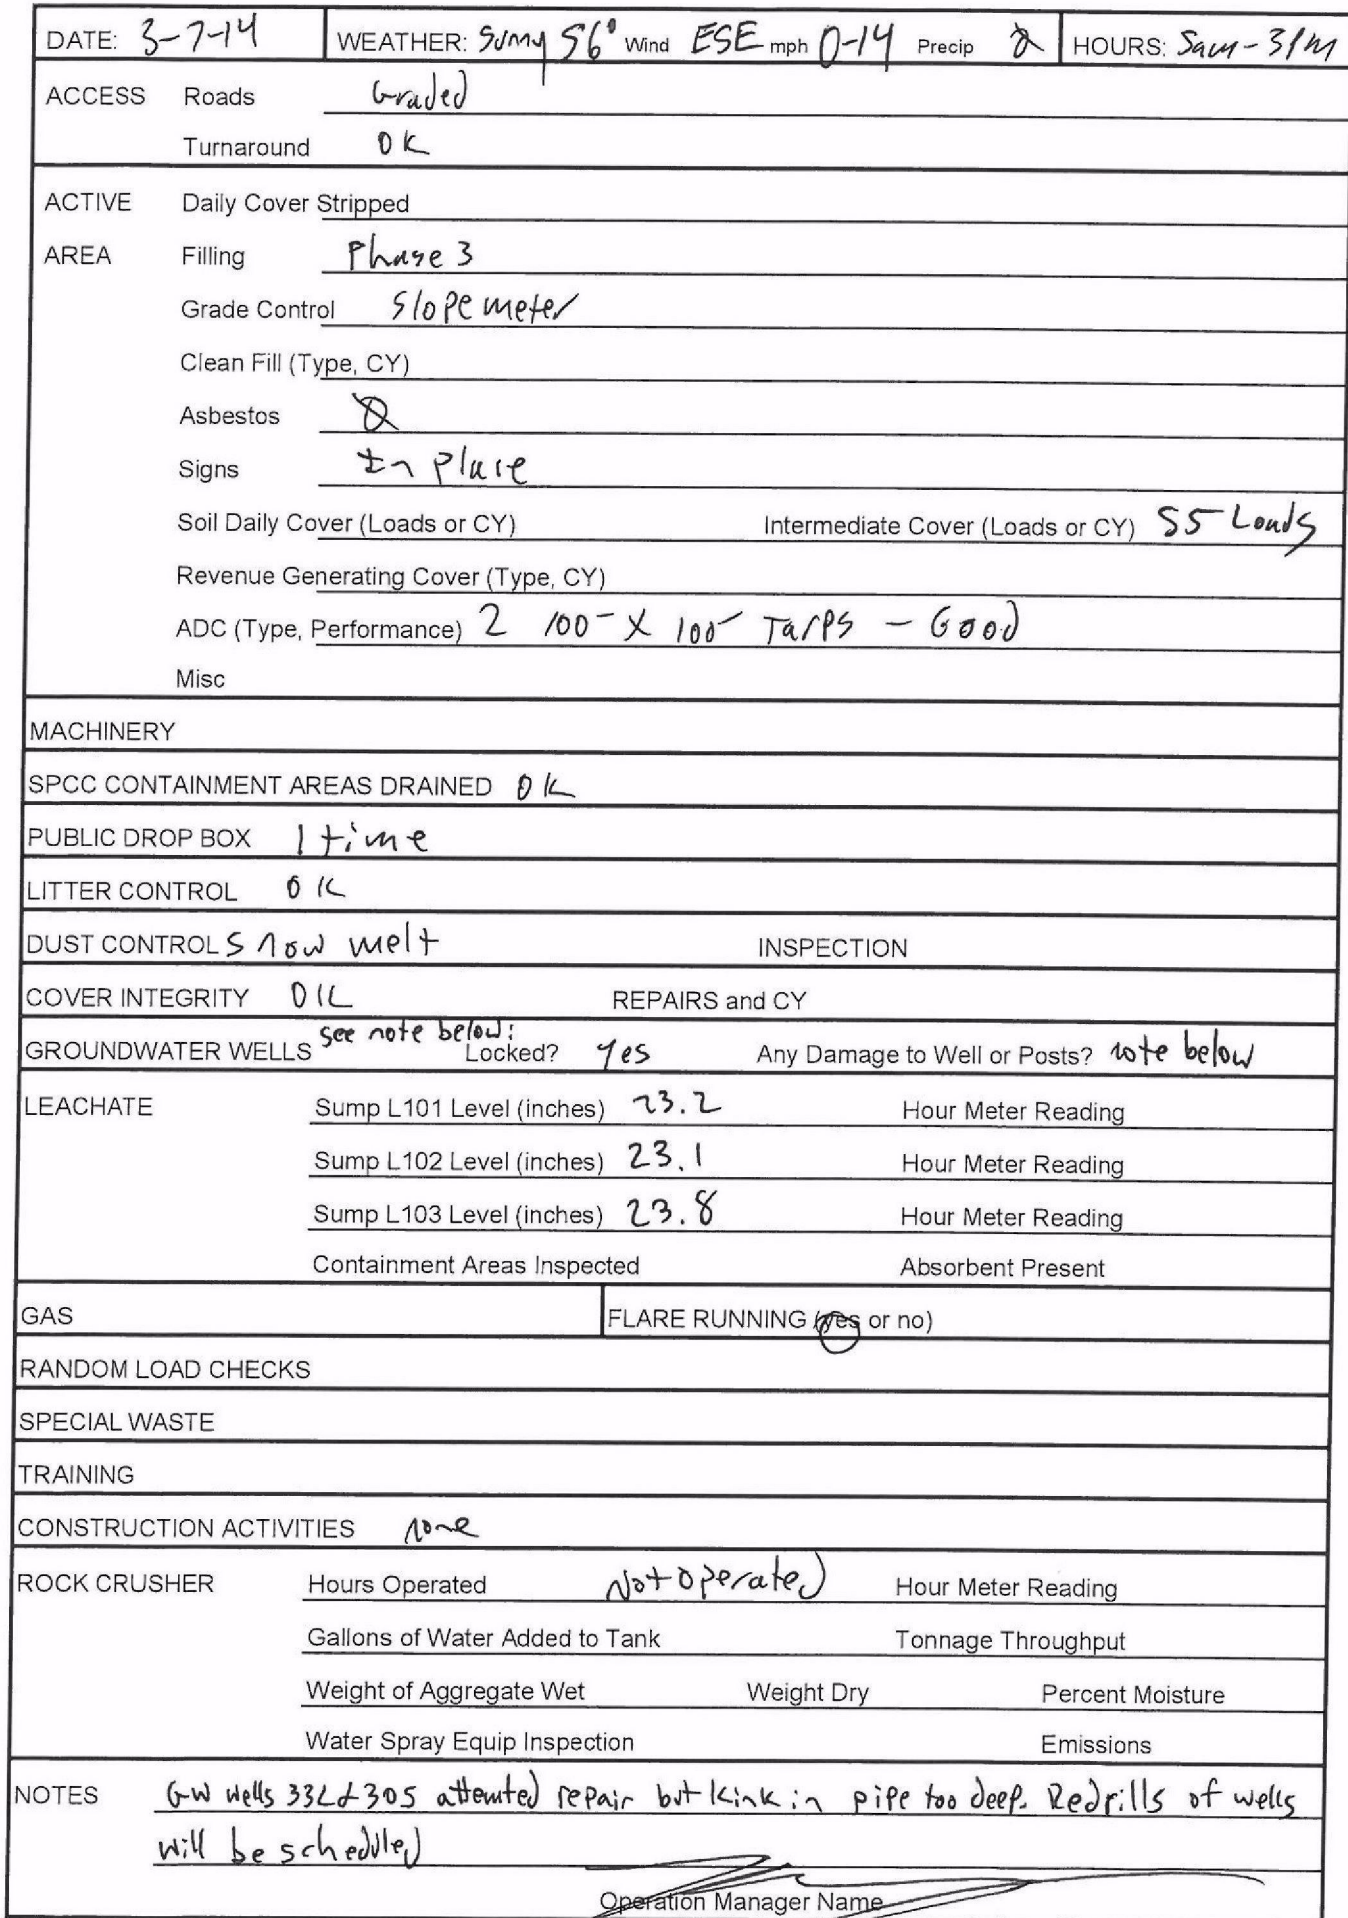 DATE: 3-7-14 WEATHER: Sunny 56° Wind ESE mph 0-14 Precip Ø HOURS: 5am - 3PM
ACCESS Roads Graded
Turnaround OK
ACTIVE Daily Cover Stripped
AREA Filling Phase 3
Grade Control Slope meter
Clean Fill (Type, CY)
Asbestos Ø
Signs In Place
Soil Daily Cover (Loads or CY) Intermediate Cover (Loads or CY) 55 Loads
Revenue Generating Cover (Type, CY)
ADC (Type, Performance) 2 100- X 100- Tarps - Good
Misc
MACHINERY
SPCC CONTAINMENT AREAS DRAINED OK
PUBLIC DROP BOX 1 time
LITTER CONTROL OK
DUST CONTROL Snow melt INSPECTION
COVER INTEGRITY OK REPAIRS and CY
GROUNDWATER WELLS see note below: Locked? yes Any Damage to Well or Posts? note below
LEACHATE Sump L101 Level (inches) 23.2 Hour Meter Reading
Sump L102 Level (inches) 23.1 Hour Meter Reading
Sump L103 Level (inches) 23.8 Hour Meter Reading
Containment Areas Inspected Absorbent Present
GAS FLARE RUNNING (yes or no)
RANDOM LOAD CHECKS
SPECIAL WASTE
TRAINING
CONSTRUCTION ACTIVITIES none
ROCK CRUSHER Hours Operated Not operated Hour Meter Reading
Gallons of Water Added to Tank Tonnage Throughput
Weight of Aggregate Wet Weight Dry Percent Moisture
Water Spray Equip Inspection Emissions
NOTES GW wells & 305 attemted repair but kink in pipe too deep. Redrills of wells
will be scheduled
Operation Manager Name